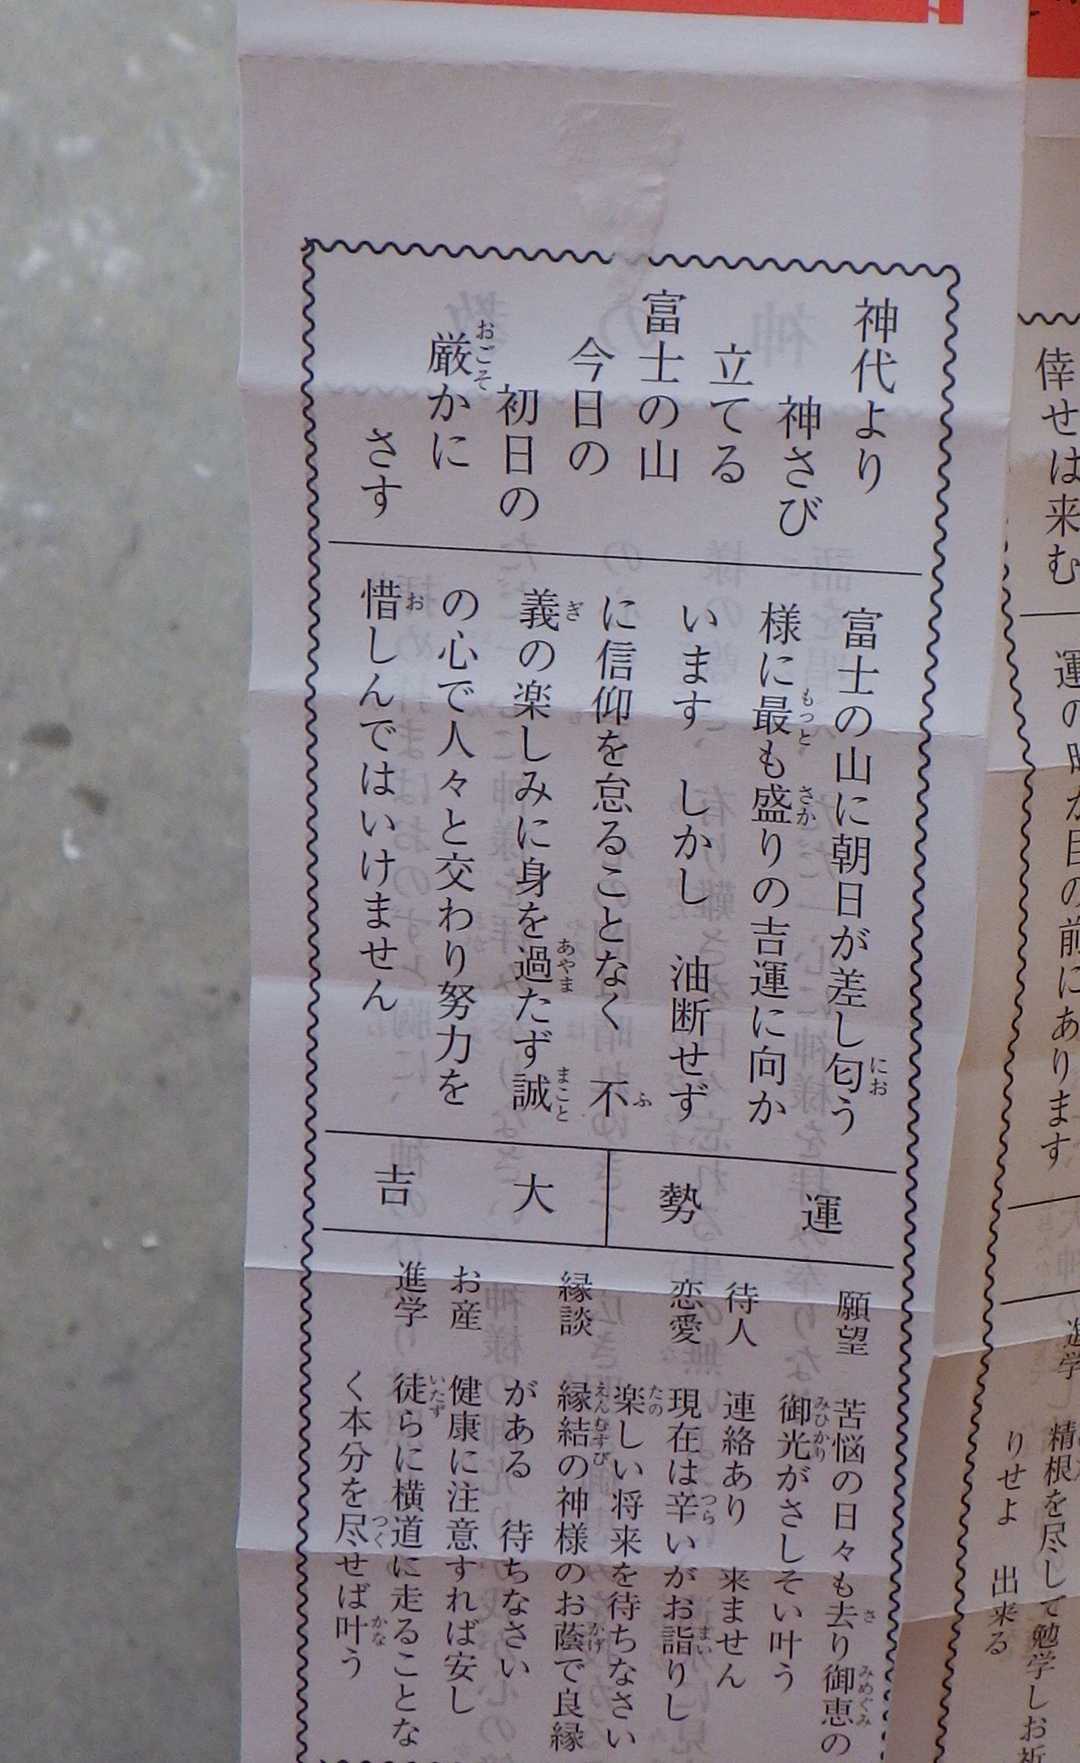 神代より
神さび
立てる
富士の山
今日の
初日の
厳かに
さす
富士の山に朝日が差し匂う
様に最も盛りの吉運に向か
います　しかし　油断せず
に信仰を怠ることなく　不
義の楽しみに身を過たず誠
の心で人々と交わり努力を
惜しんではいけません
運勢
大吉
願望　苦悩の日々も去り御恵の
御光がさしそい叶う
待人　連絡あり　来ません
恋愛　現在は辛いがお詣りし
楽しい将来を待ちなさい
縁談　縁結の神様のお蔭で良縁
がある　待ちなさい
お産　健康に注意すれば安し
進学　徒らに横道に走ることな
く本分を尽せば叶う
倖せは来む
運の時が目の前にあります
進学　精根を尽して勉学しお祈
りせよ　出来る